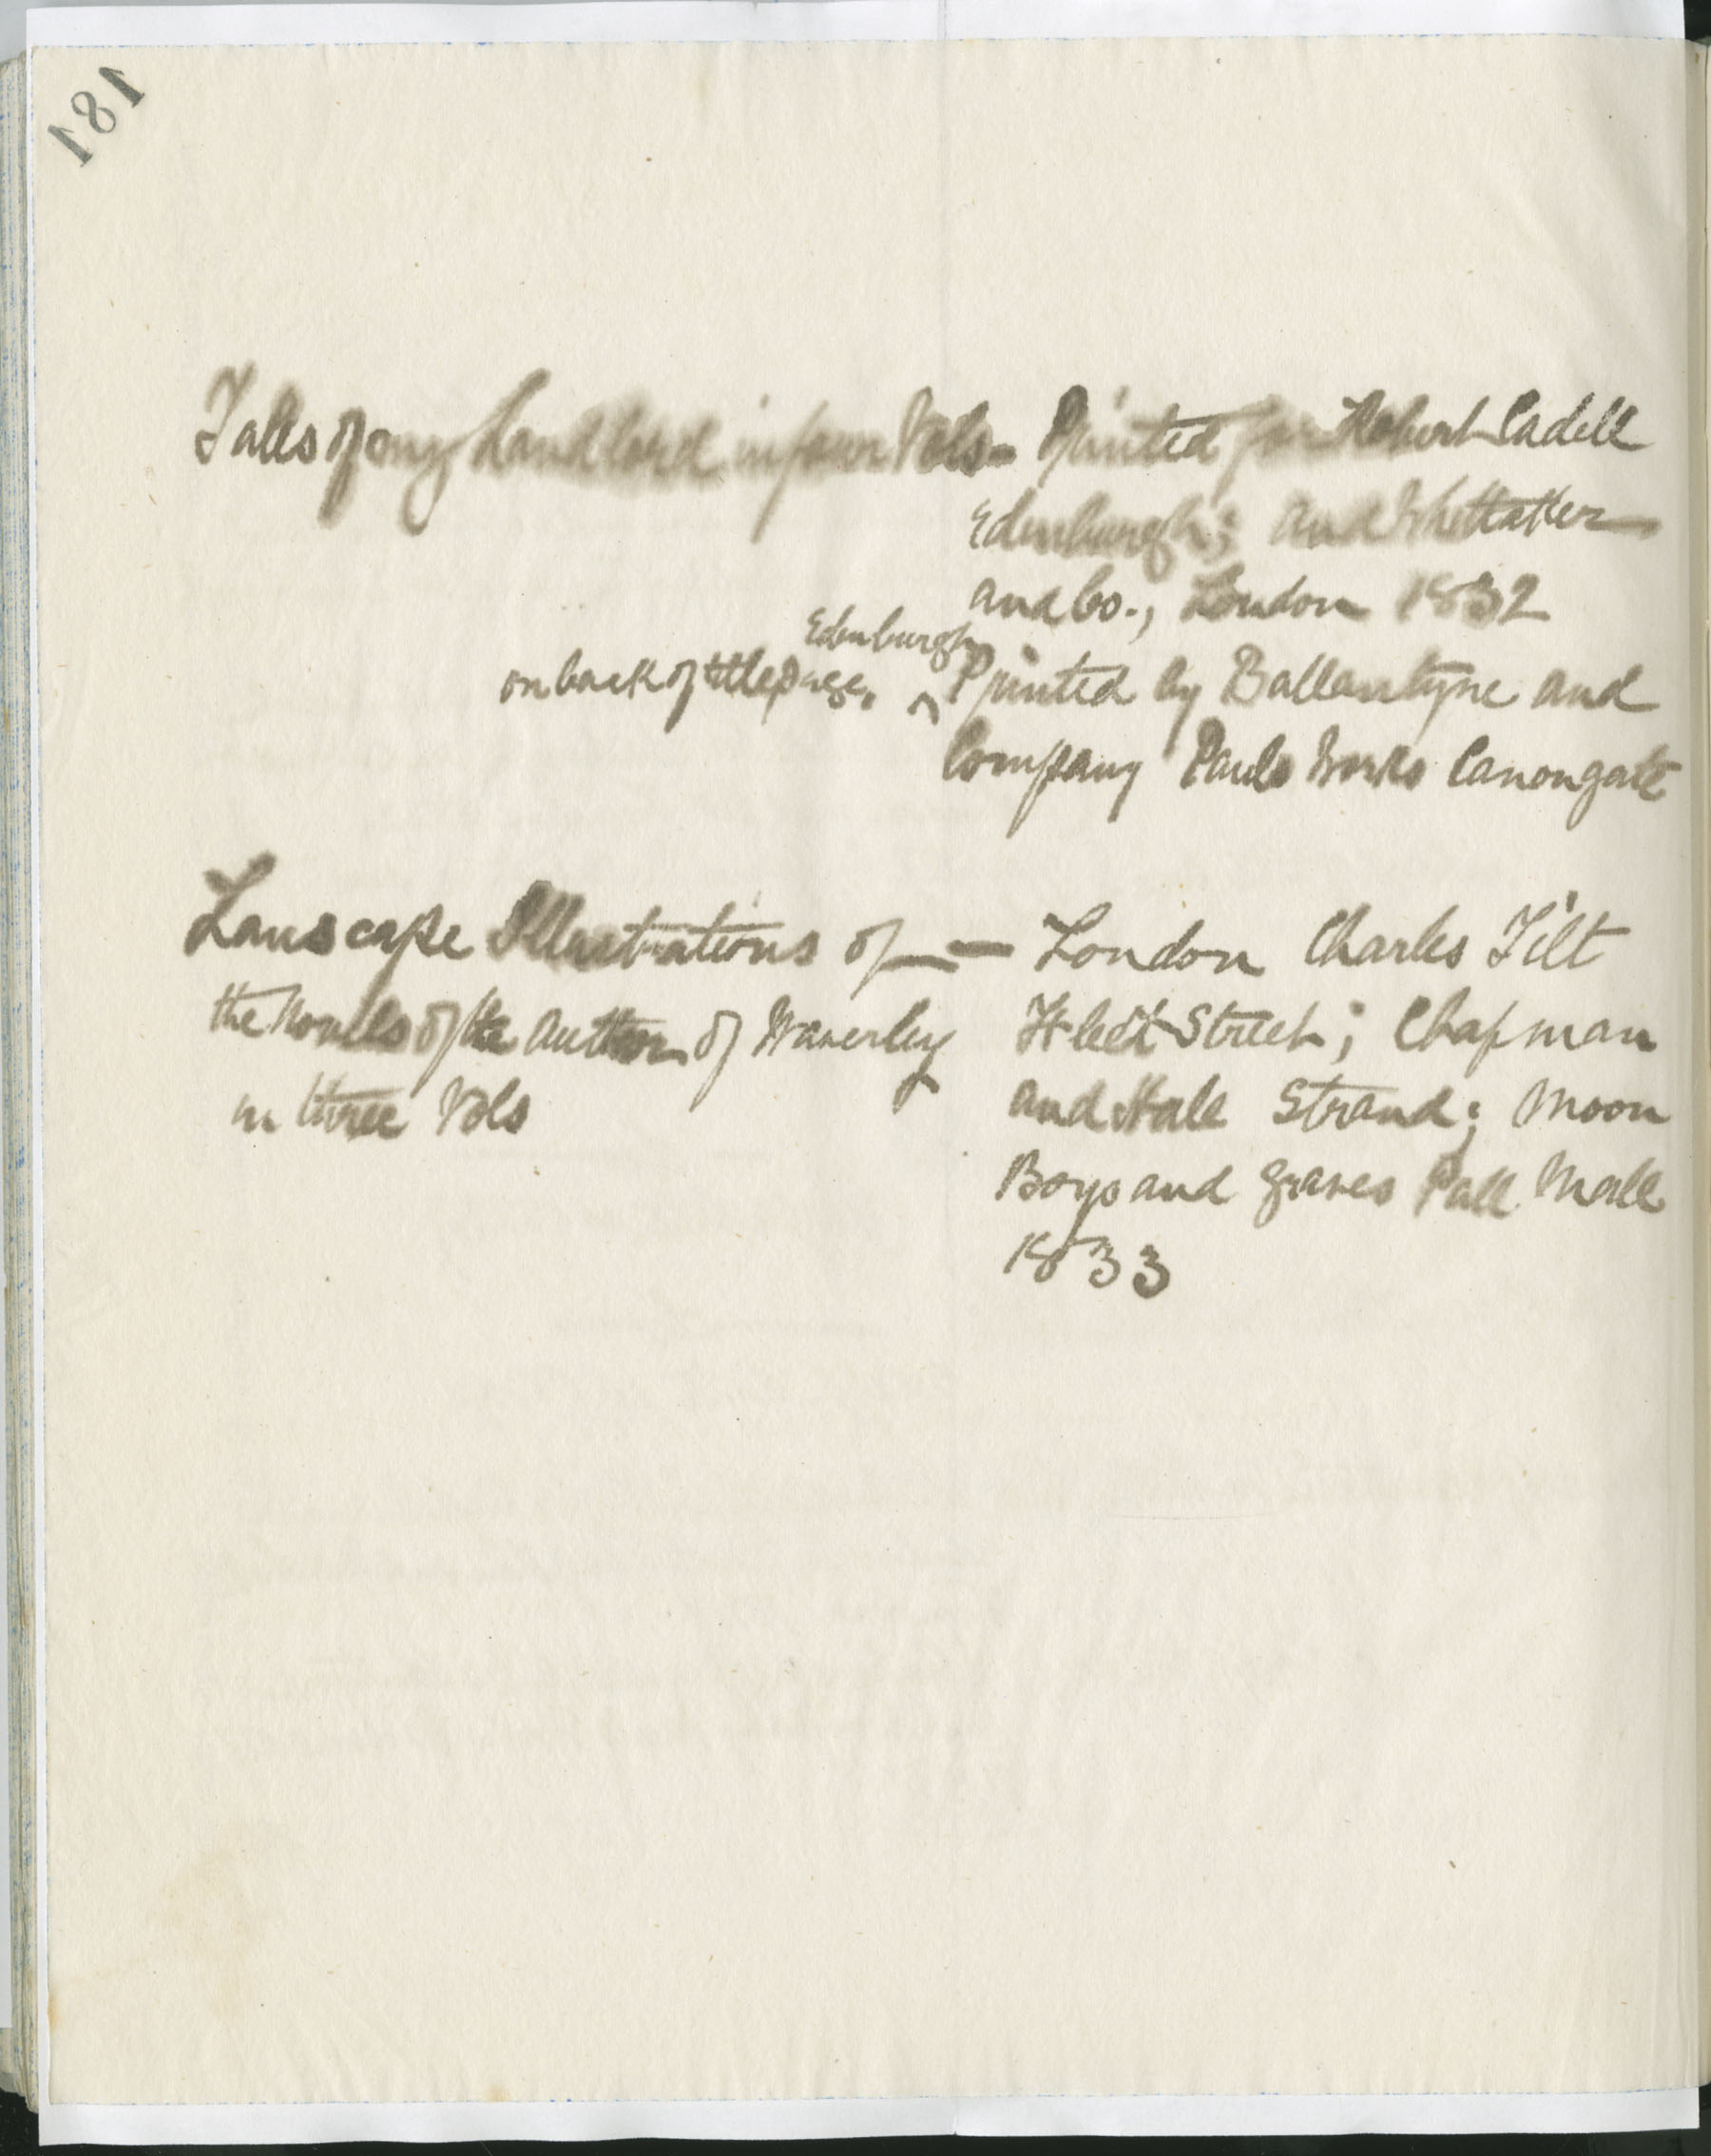 181
Tales of my Landlord in four Vols - Printed for Robert Cadell
Edinburgh; and Whittaker
and Co., London 1832
Edinburgh
on back of titlepage. ^ Printed by Ballantyne and
Company Pauls Works Canongate
Lanscape Illustrations of — London Charles Tilt
the Novels of the Author of Waverley Fleet Street; Chapman
in three Vols and Hall Strand; Moon
Boys and Graves Pall Mall
1833